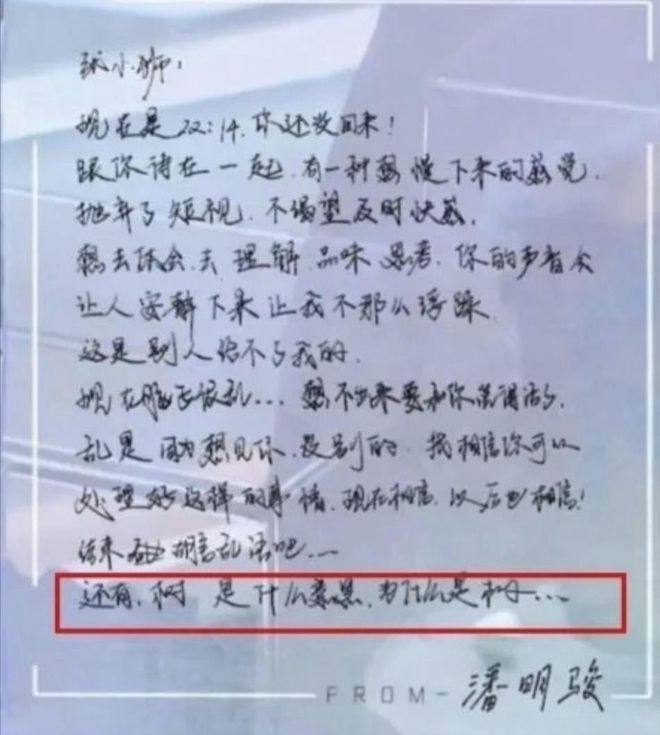 张小狮：
现在是22:14.你还没回来！
跟你待在一起.有一种想慢下来的感觉.
抛弃了短视.不渴望及时快感.
想去体会.去理解.品味.思考.你的声音会
让人安静下来让我不那么浮躁.
这是别人给不了我的.
现在脑子很乱... 想不出来要和你说得话了.
乱是因为想见你.没别的.我相信你可以
处理好这样的事情.现在相信.以后也相信！
结束胡言乱语吧...
还有.树 是什么意思.为什么是树...
FROM- 潘明骏